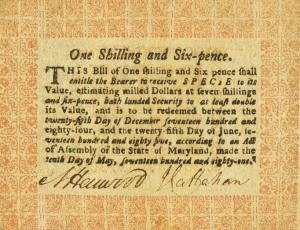 One Shilling and Six-pence.
THIS Bill of One shilling and Six pence shall
entitle the Bearer to receive SPECIE to its
Value, estimating milled Dollars at seven shillings
and six-pence, hath landed Security to at least double
its Value, and is to be redeemed between the
twenty-fifth Day of December seventeen hundred and
eighty-four, and the twenty-fifth Day of June, se-
venteen hundred and eighty five, according to an Act
of Assembly of the State of Maryland, made the
tenth Day of May, seventeen hundred and eighty-one.
N Harwood J Callahan